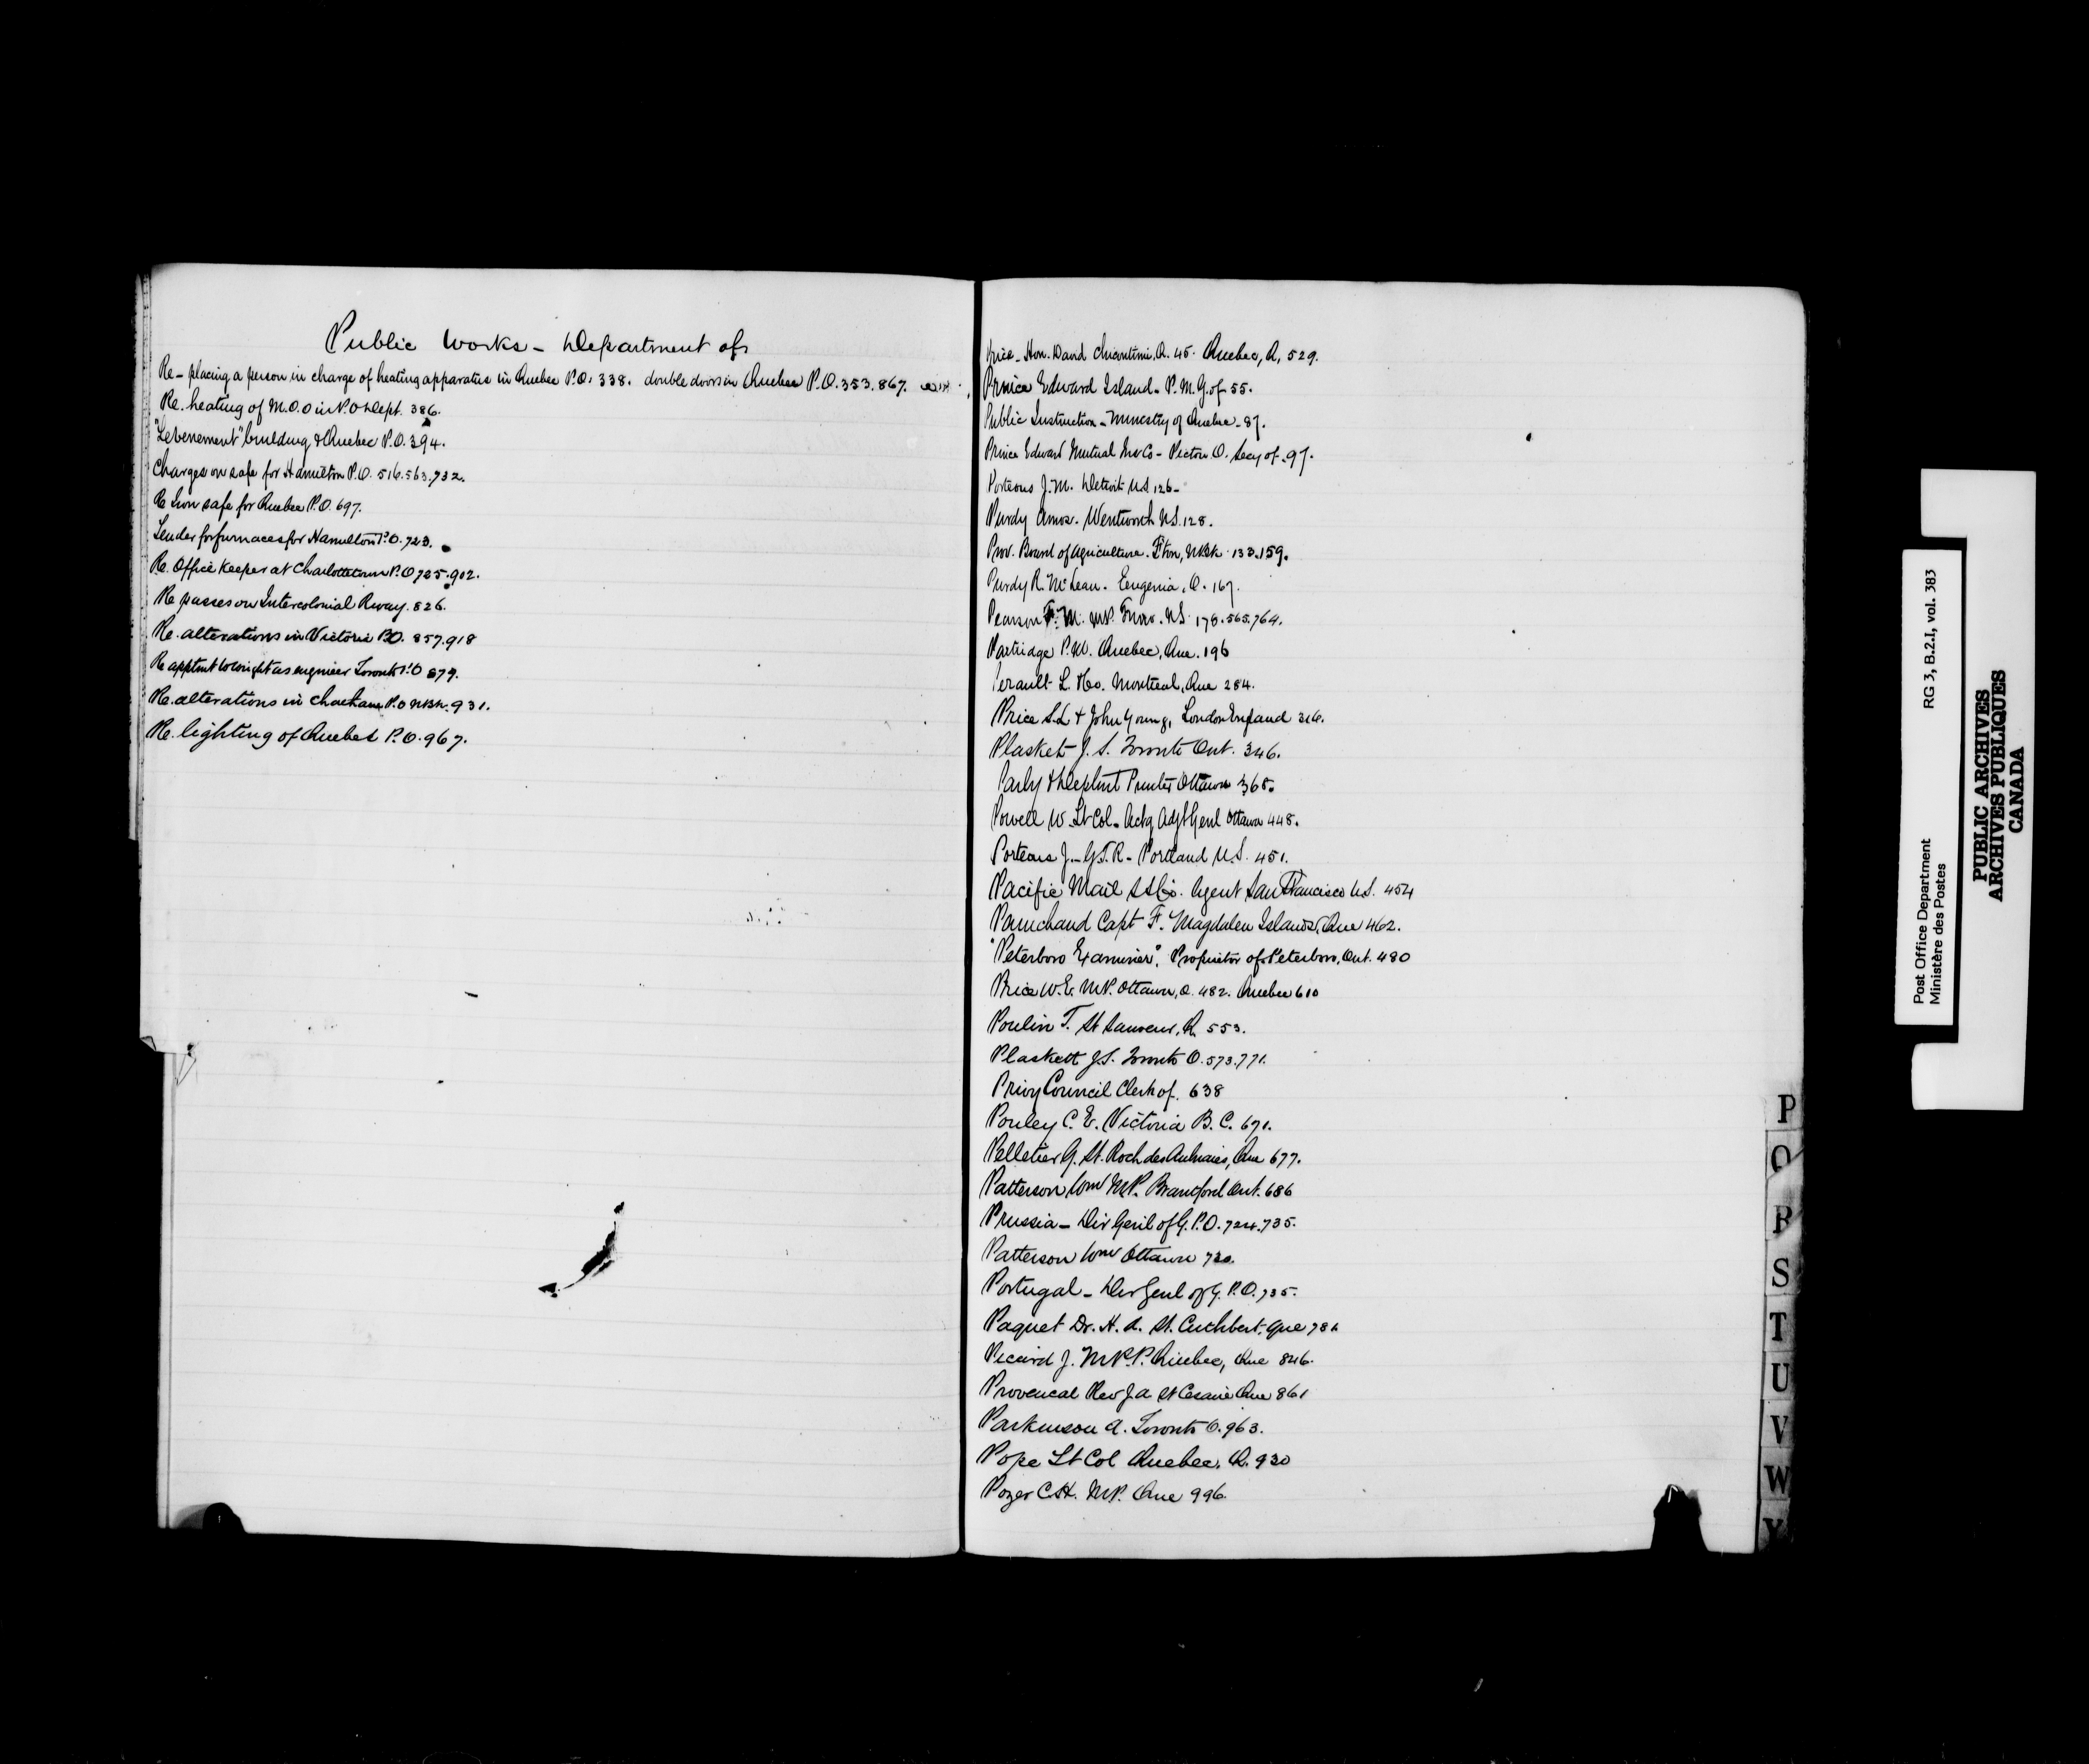 Public Works - Department of
Re - placing a person in charge of heating apparatus in Quebec P.O. 338. double doors in Quebec P.O. 353. 867.
Re. heating of M.O.O in P.O Dept. 386.
"L'evenement" building & Quebec P.O. 394.
Charges on safe for Hamilton P.O. 516. 563. 732.
Re Iron safe for Quebec P.O. 697.
Tender for furnaces for Hamilton P.O. 723.
Re. Office Keeper at Charlottetown P.O 725. 902.
Re passes on Intercolonial Rway. 826.
Re. alterations in Victoria P.O. 857. 918
Re apptmt Wright as engineer Toronto P.O 879.
Re. alterations in Chatham P.O NBk. 931.
Re. lighting of Quebec P.O. 967.
Price - Hon. David Chicoutimi, Q. 45. Quebec, Q, 529.
Prince Edward Island - P.M.G. of 55.
Public Instruction - Ministry of Quebec - 87.
Prince Edward Mutual Ins Co - Picton O. Secy of. 97.
Porteous J.M. Detroit U.S 126 -
Purdy Amos. Wentworth N.S. 128.
Prov. Board of Agriculture. Fton, NBk. 133. 159.
Purdy R. McLean. Eugenia, O. 167.
Pearson F. M. MP. Truro. N.S. 178. 565. 764.
Partridge P.W. Quebec, Que. 196
Perault L. & Co. Montreal, Que 284.
Price S.L & John Young, London England 316.
Plaskett J. S. Toronto Ont. 346.
Parly & Deptmt Printer Ottawa 365.
Powell W. Lt Col. Actg Adjt Genl Ottawa 448.
Porteous J. - G.T.R - Portland U.S. 451.
Pacific Mail SS Co. Agent San Francisco U.S. 454
Painchaud Capt F. Magdalen Islands, Que 462.
"Peterboro Examiner". Proprietor of Peterboro, Ont. 480
Price W. E. MP. Ottawa, O. 482. Quebec 610
Poulin T. St Sauveur, Q. 553.
Plaskett J.S. Toronto O. 573. 771.
Privy Council Clerk of. 638
Pouley C. E. Victoria B. C. 671.
Pelletier G. St. Roch des Aulnaies, Que 677.
Patterson Wm MP. Brantford Ont. 686
Prussia - Dir Genl of G. P.O. 724. 735.
Patterson Wm Ottawa 730.
Portugal - Dir Genl of G. P.O. 735.
Paquet Dr. H. A. St. Cuthbert, Que 781
Picard J. MP.P. Quebec, Que 846.
Provencal Rev J. A St Cesaire Que 861
Parkinson A. Toronto O. 963.
Pope Lt Col Quebec, Q. 930
Pozer C.H. MP. Que 996.
P
Q
R
S
T
U
V
W
Y
Post Office Department RG 3, B.2.I, vol. 383
Ministère des Postes
PUBLIC ARCHIVES
ARCHIVES PUBLIQUES
CANADA